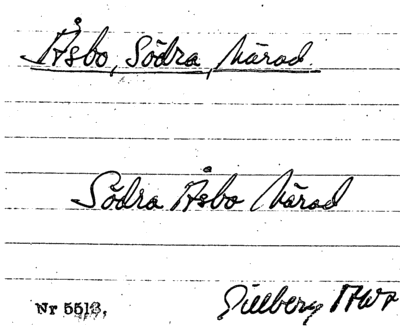 Åsbo, Södra, härad.
Södra Åsbo härad
Nr 5513,
Gillberg